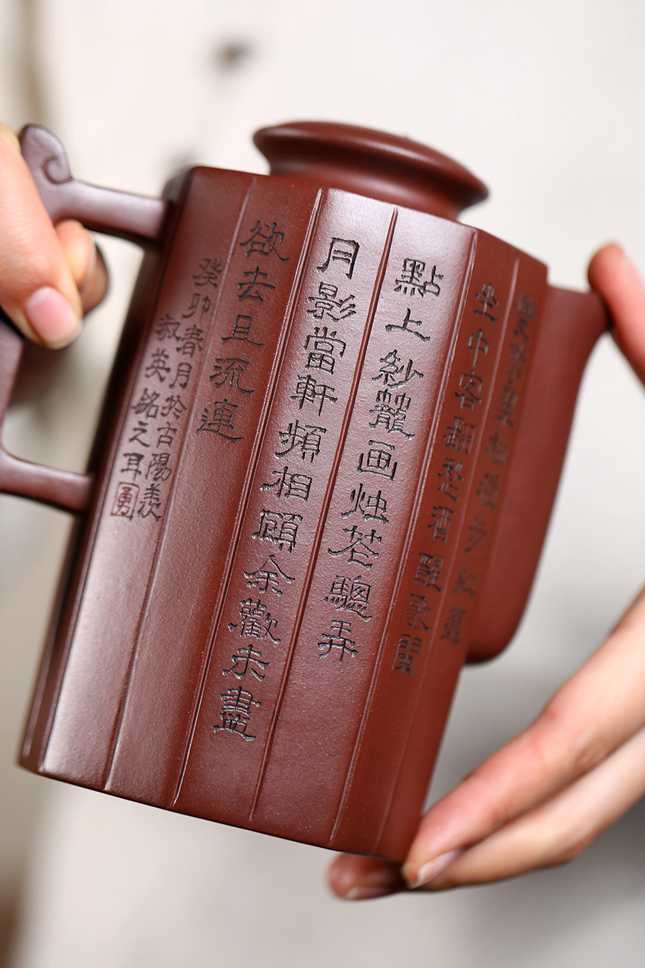 坐中客翻愁酒醒歌闌
點上紗籠画烛花驄弄
月影當軒頻相顧余歡未盡
欲去且流連
癸卯春月於古陽羨
叔英銘之耳
勇